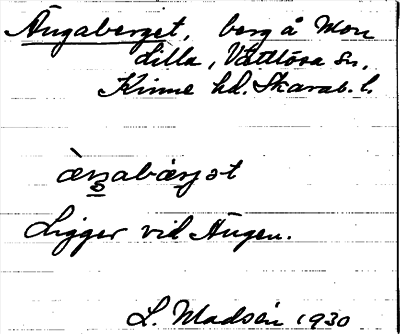 Ängaberget, berg å Mon
lilla, Vättlösa sn,
Kinne hd. Skarab. l.
Ligger vid Ängen.
L. Madsén 1930